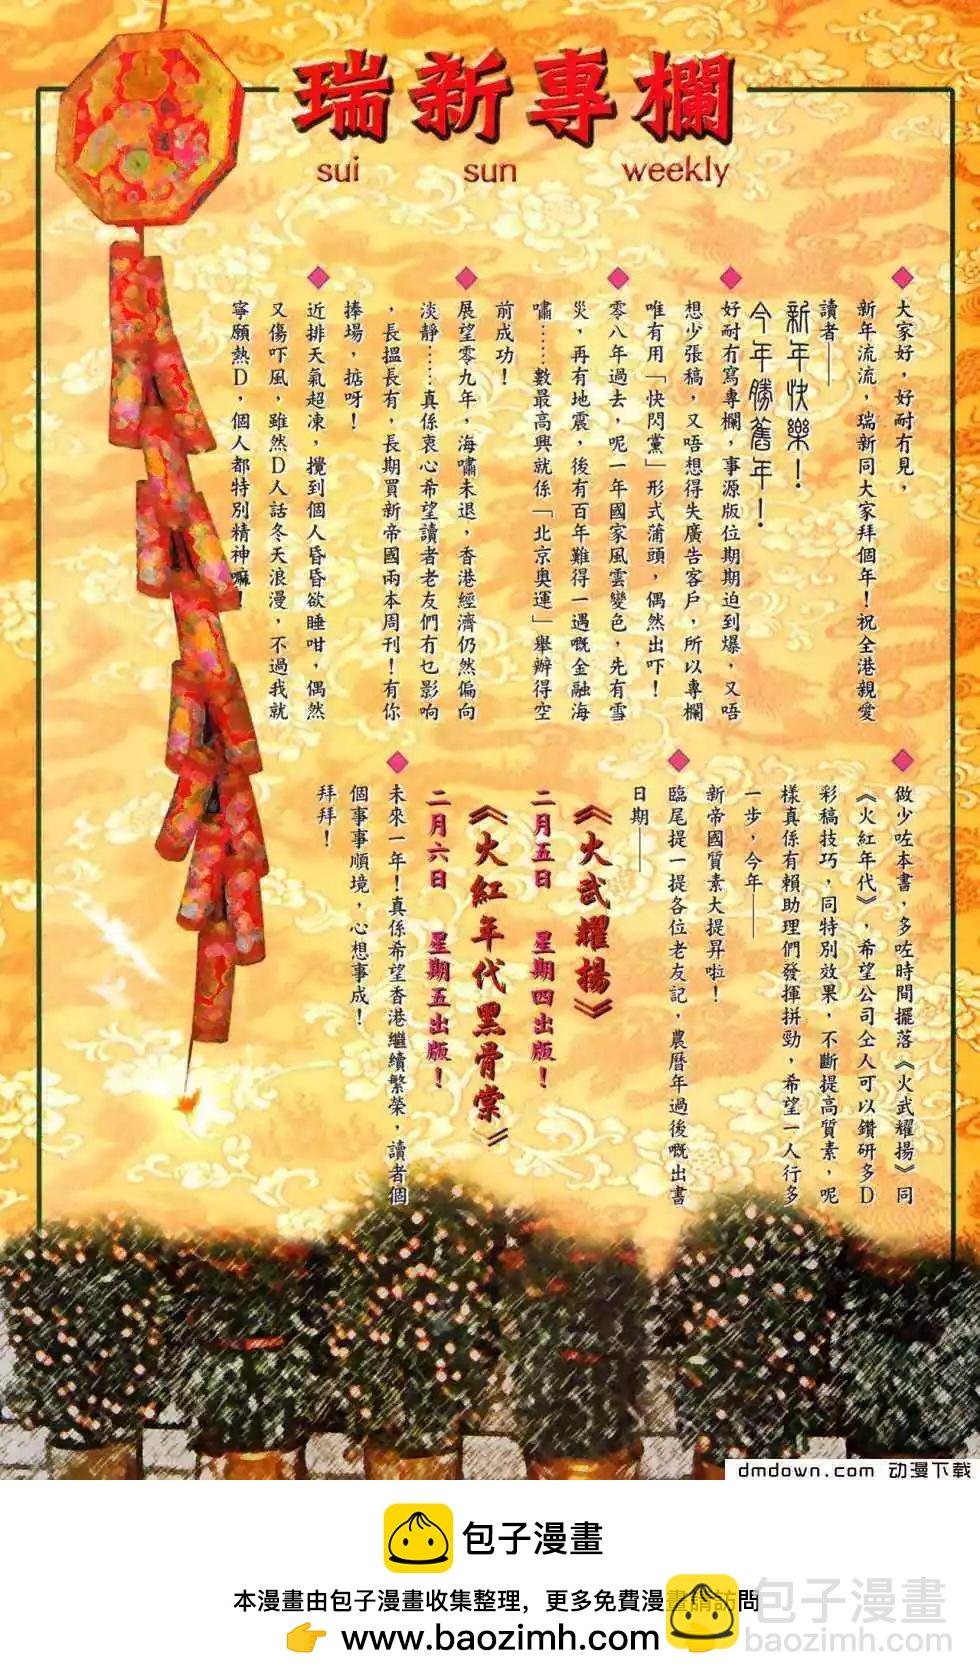 瑞新專欄
sui sun weekly
大家好，好耐冇見，
新年流流，瑞新同大家拜個年！祝全港親愛
讀者——
新年快樂！
今年勝舊年！
好耐冇寫專欄，事源版位期期迫到爆，又唔
想少張稿，又唔想得失廣告客戶，所以專欄
唯有用「快閃黨」形式蒲頭，偶然出吓！
零八年過去，呢一年國家風雲變色，先有雪
災，再有地震，後有百年難得一遇嘅金融海
嘯……數最高興就係「北京奧運」舉辦得空
前成功！
展望零九年，海嘯未退，香港經濟仍然偏向
淡靜……真係衷心希望讀者老友們冇乜影响
，長搵長有，長期買新帝國兩本周刊！有你
捧場，掂呀！
近排天氣超凍，攪到個人昏昏欲睡咁，偶然
又傷吓風，雖然D人話冬天浪漫，不過我就
寧願熱D，個人都特別精神嘛！
做少咗本書，多咗時間擺落《火武耀揚》同
《火紅年代》，希望公司仝人可以鑽研多D
彩稿技巧，同特別效果，不斷提高質素，呢
樣真係有賴助理們發揮拼勁，希望一人行多
一步，今年——
新帝國質素大提昇啦！
臨尾提一提各位老友記，農曆年過後嘅出書
日期——
《火武耀揚》
二月五日 星期四出版！
《火紅年代黑骨棠》
二月六日 星期五出版！
未來一年！真係希望香港繼續繁榮，讀者個
個事事順境，心想事成！
拜拜！
dmdown.com 动漫下载
包子漫畫
本漫畫由包子漫畫收集整理，更多免費漫畫請訪問
👉 www.baozimh.com
包子漫畫
baozimh.com